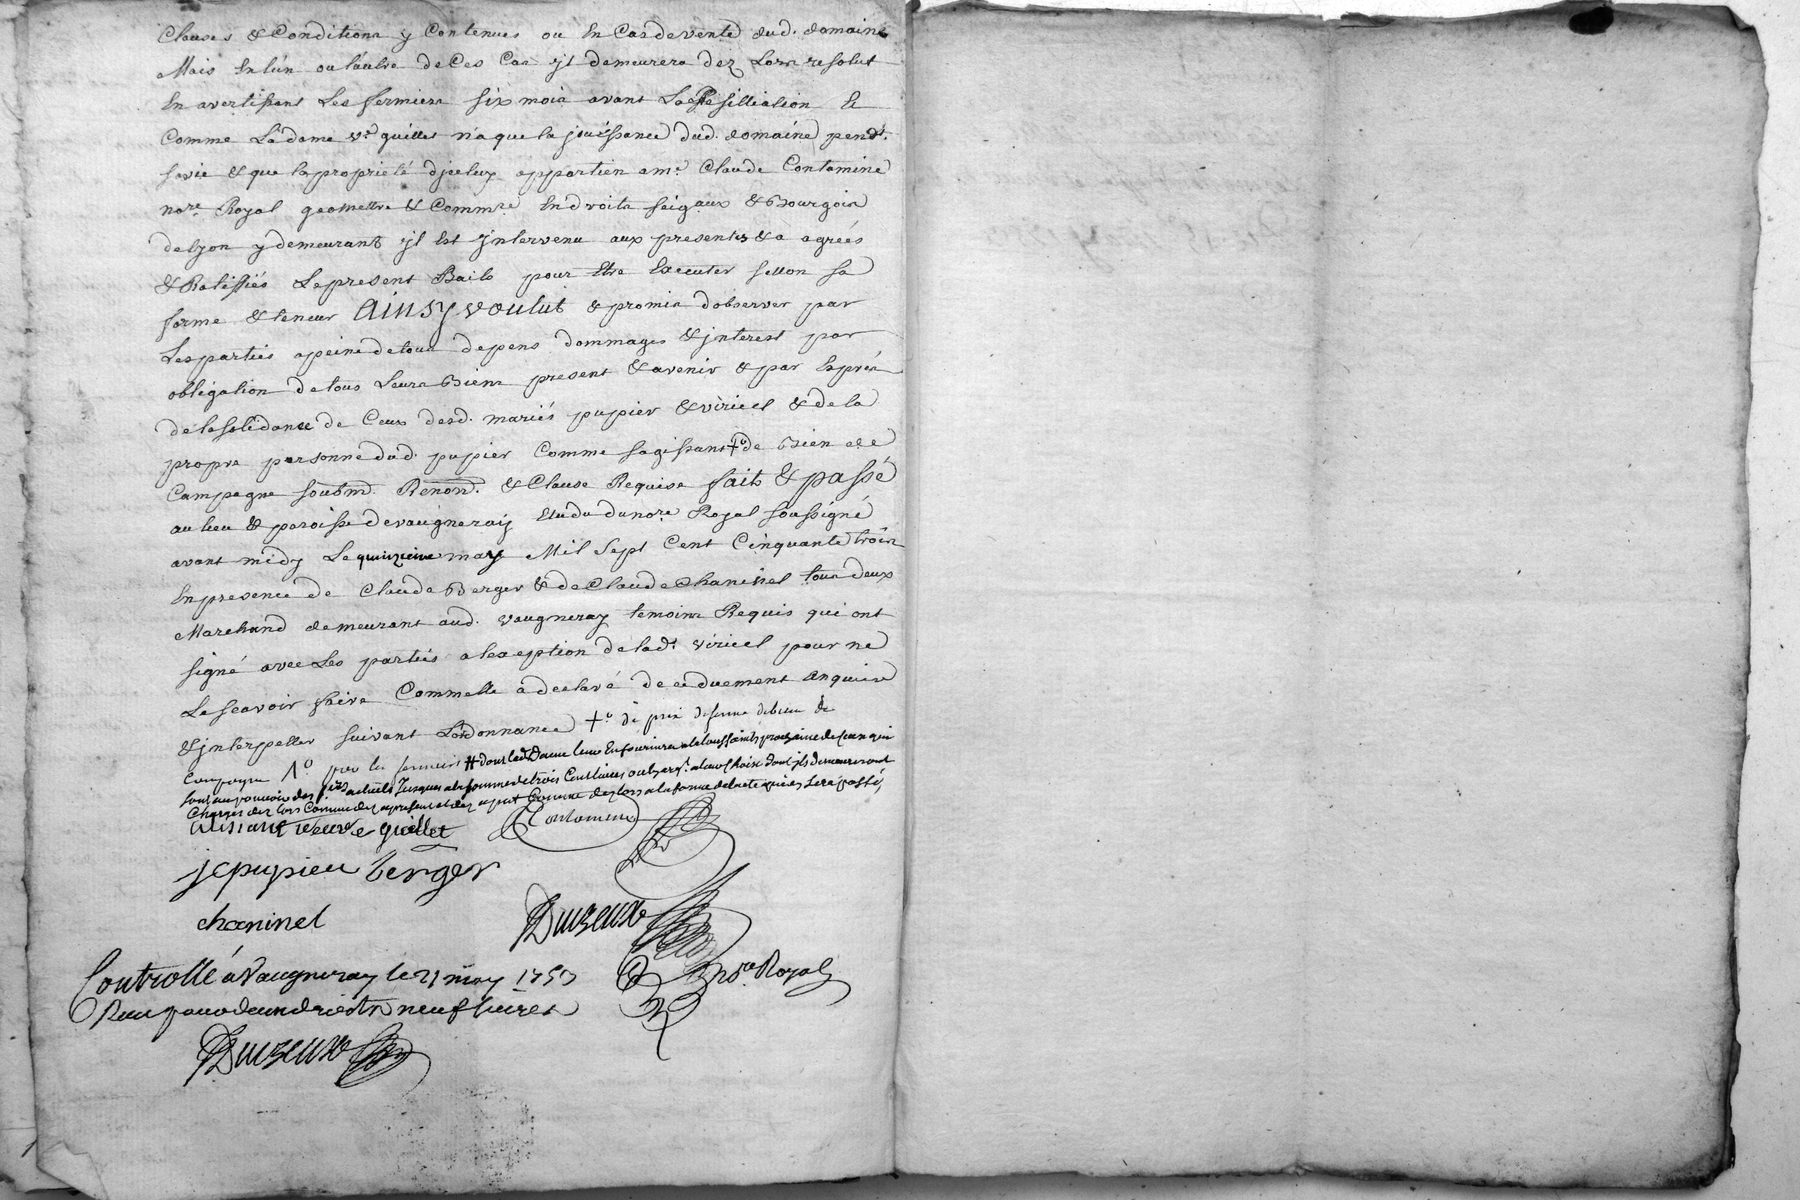 Clauses & Conditions y Contenues ou En Cas de vente dud. domaine
Mais En lún ou láutre de Ces Cas yl demeurera dez Lors resolut
En avertissant Les fermiers six mois avant La Resilliation Et
Comme Ladame ve. guillet n'a que la jouissance dud. domaine pendt.
sa vie & que la proprieté d'jceluy appartien a me. Claude Contamine
nore. Royal geomettre & Commre. En droits seigaux & Bourgois
de lyon y demeurant yl Est jntervenu aux presentes & a agréés
& Ratiffiés Le present Bails pour Etre Executer sellon sa
forme & teneur Ainsy voulut & promis d'observer par
Les parties a peine de tous depens dommages & jnterest par
obligation de tous Leurs Biens present & avenir & par Exprés
de la solidance de Ceux desd. mariés pupier & viricel & de la
propre personne dud. pupier Comme s'agissant +o de Bien de
Campagne soubmd. Renond. & Clause Requise fait & passé
au lieu & paroisse de vaugneray Etude du nore Royal soussigné
avant midy Le quinzieme may Mil Sept Cent Cinquante trois
En presence de Claude Berger & de Claude Chaninel tous deux
Marchand demeurant aud. vaugneray temoins Requis qui ont
signé avec Les parties a lexeption de lad. viricel pour ne
Le scavoir faire Comme Elle a declaré de ce duement Enquise
& jnterpeller suivant L'ordonnance +o de prix de ferme de bien de
Campagne 1o par les fermiers # dont lad. Dame leur En fournira a la toussaints prochaine
jusques a la somme de trois Cent livres
Charges dez lors Comme dez apresent et dez apnt Comme dez lors a la forme de lacte qui en sera passé
veuve guillet Contamine
je pupieu berger
chaninel
Duizeuxe
nore Royal
Controllé á Vaugneray le 21 may 1753
Recu pour deux droits neuf livres
Duizeuxe